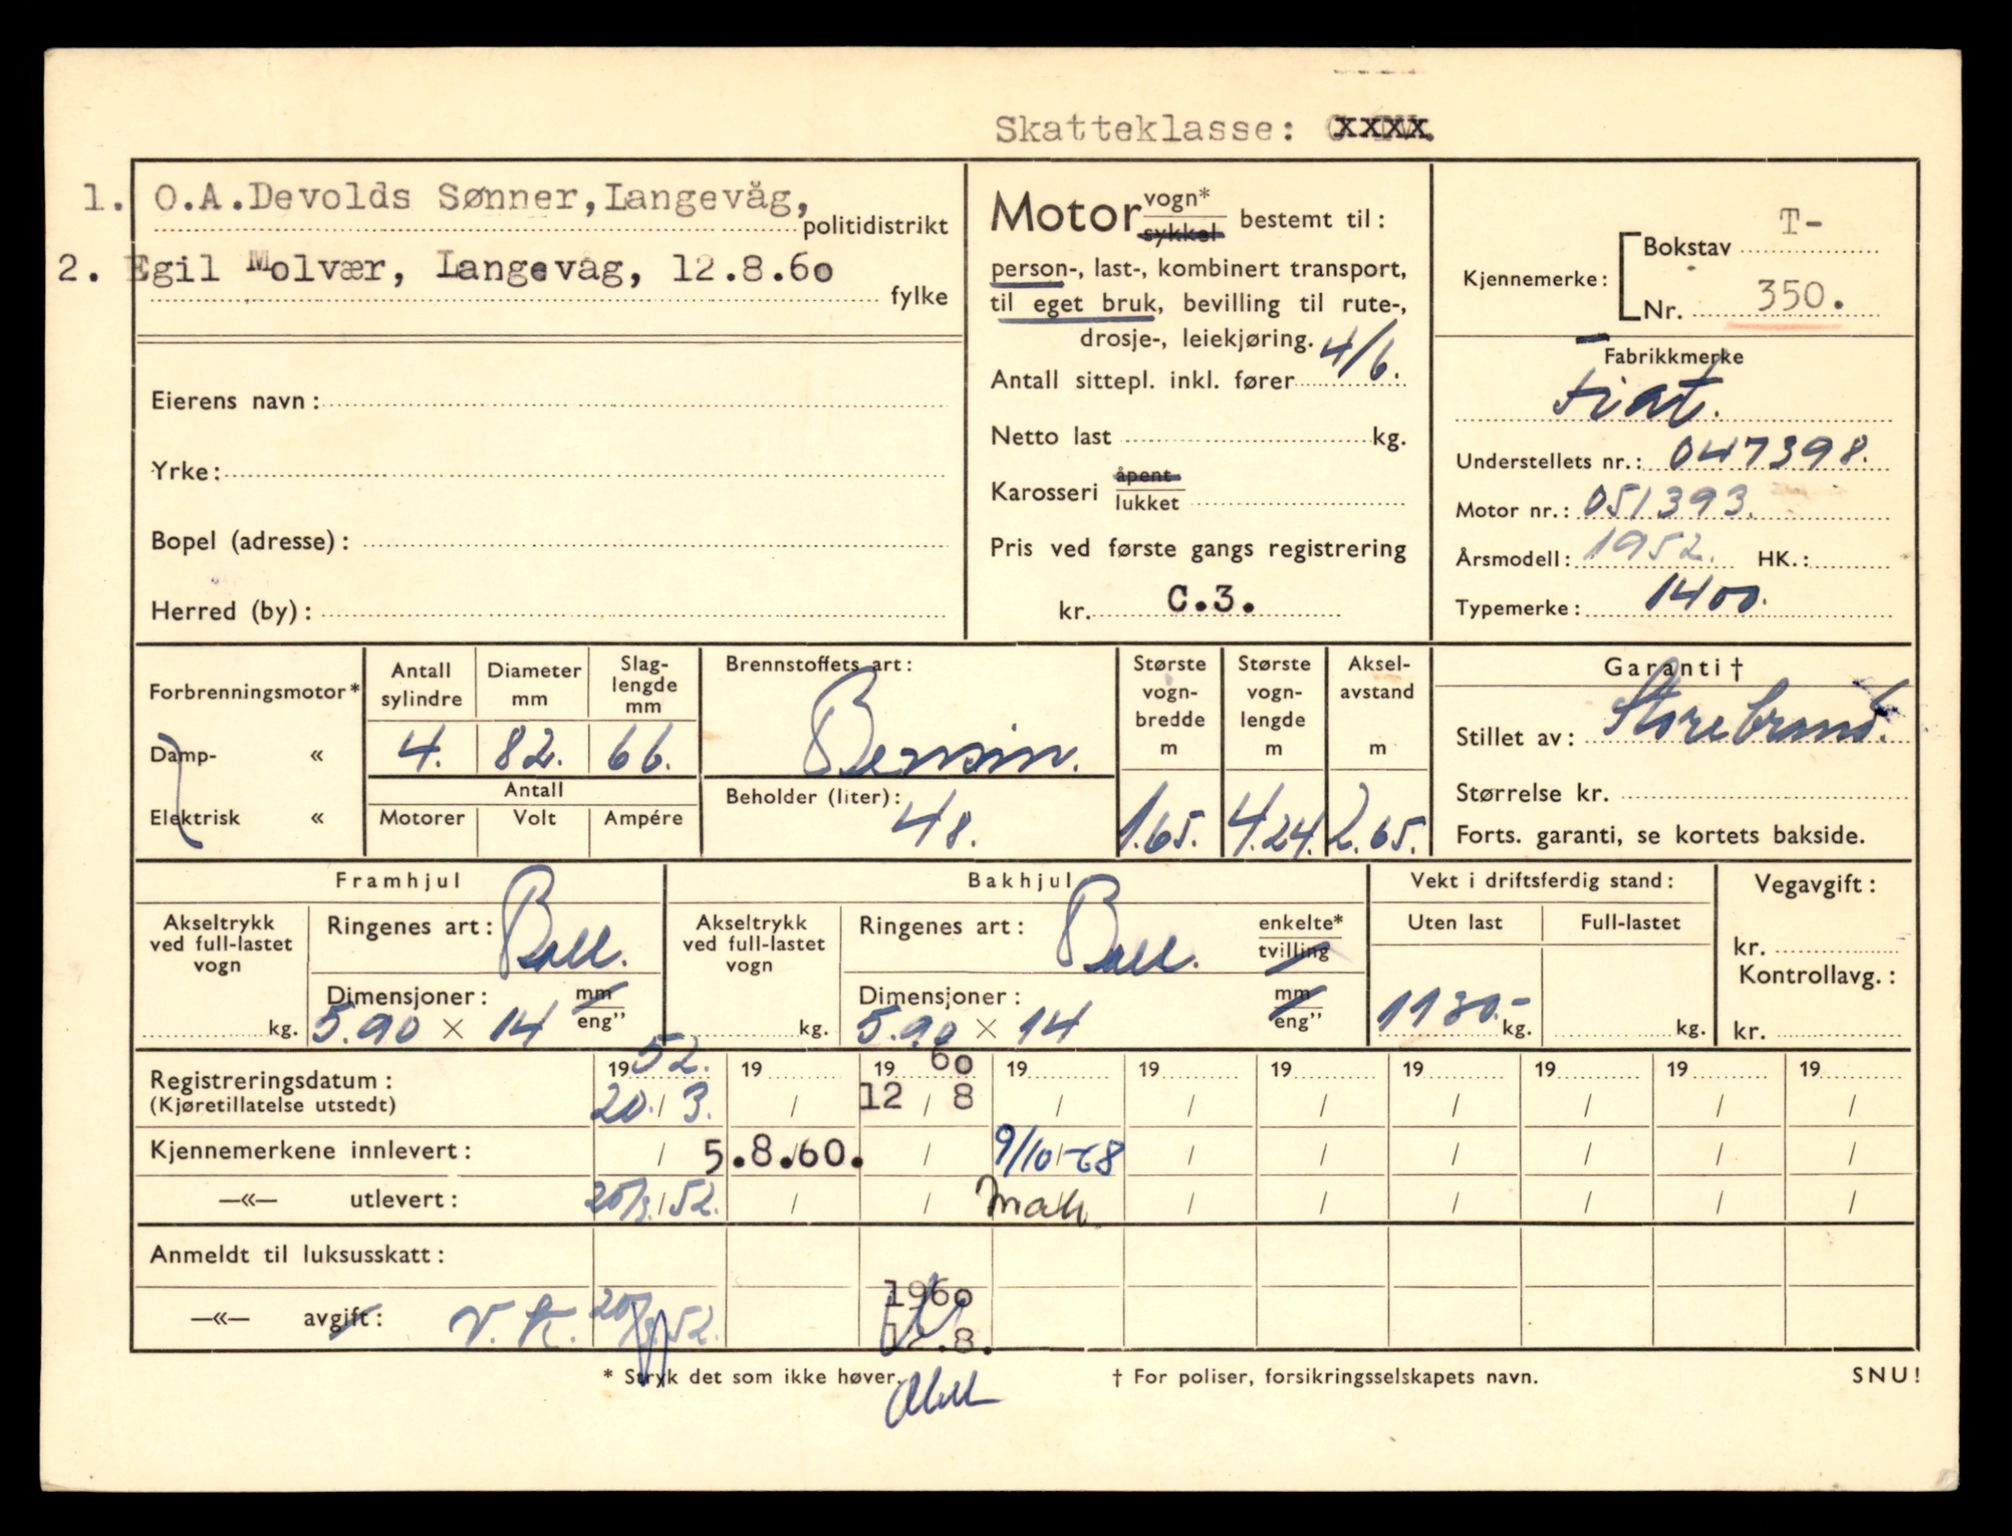 Skatteklasse: xxxx
1. O.A.Devolds Sønner, Langevåg,
politidistrikt
2. Egil Molvær, Langevåg, 12.8.60
fylke
Eierens navn:
Yrke:
Bopel (adresse):
Herred (by):
Motor vogn* sykkel bestemt til:
person-, last-, kombinert transport,
til eget bruk, bevilling til rute-,
drosje-, leiekjøring.
Antall sittepl. inkl. fører 4/6.
Netto last kg.
Karosseri åpent lukket
Pris ved første gangs registrering
kr. C.3.
Kjennemerke: Bokstav T-
Nr. 350.
Fabrikkmerke
Fiat.
Understellets nr.: 047398.
Motor nr.: 051393.
Årsmodell: 1952. HK.:
Typemerke: 1400.
Forbrenningsmotor*
Damp- «
Elektrisk «
Antall sylindre 4.
Diameter mm 82.
Slag-lengde mm 66.
Antall
Motorer Volt Ampére
Brennstoffets art:
Bensin.
Beholder (liter):
48.
Største vogn-bredde m 1.65.
Største vogn-lengde m 4.24.
Aksel-avstand m 2.65.
Garanti †
Stillet av: Storebrand.
Størrelse kr.
Forts. garanti, se kortets bakside.
Framhjul
Akseltrykk ved full-lastet vogn
kg.
Ringenes art: Ball.
Dimensjoner: mm eng”
5.90 × 14
Bakhjul
Akseltrykk ved full-lastet vogn
kg.
Ringenes art: Ball. enkelte* tvilling
Dimensjoner: mm eng”
5.90 × 14
Vekt i driftsferdig stand:
Uten last Full-lastet
1130.- kg. kg.
Vegavgift:
kr.
Kontrollavg.:
kr.
Registreringsdatum: 1952. 19 1960 19 19 19 19 19 19 19
(Kjøretillatelse utstedt) 20./3. / 12 / 8 / / / / / / /
Kjennemerkene innlevert: / 5.8.60. / 9/10-68 / / / / / /
—«— utlevert: 20/3.52. / / Mah / / / / / /
Anmeldt til luksusskatt:
—«— avgift: V.K. 20/3.52. 1960
12.8.
* Stryk det som ikke høver. † For poliser, forsikringsselskapets navn. SNU!